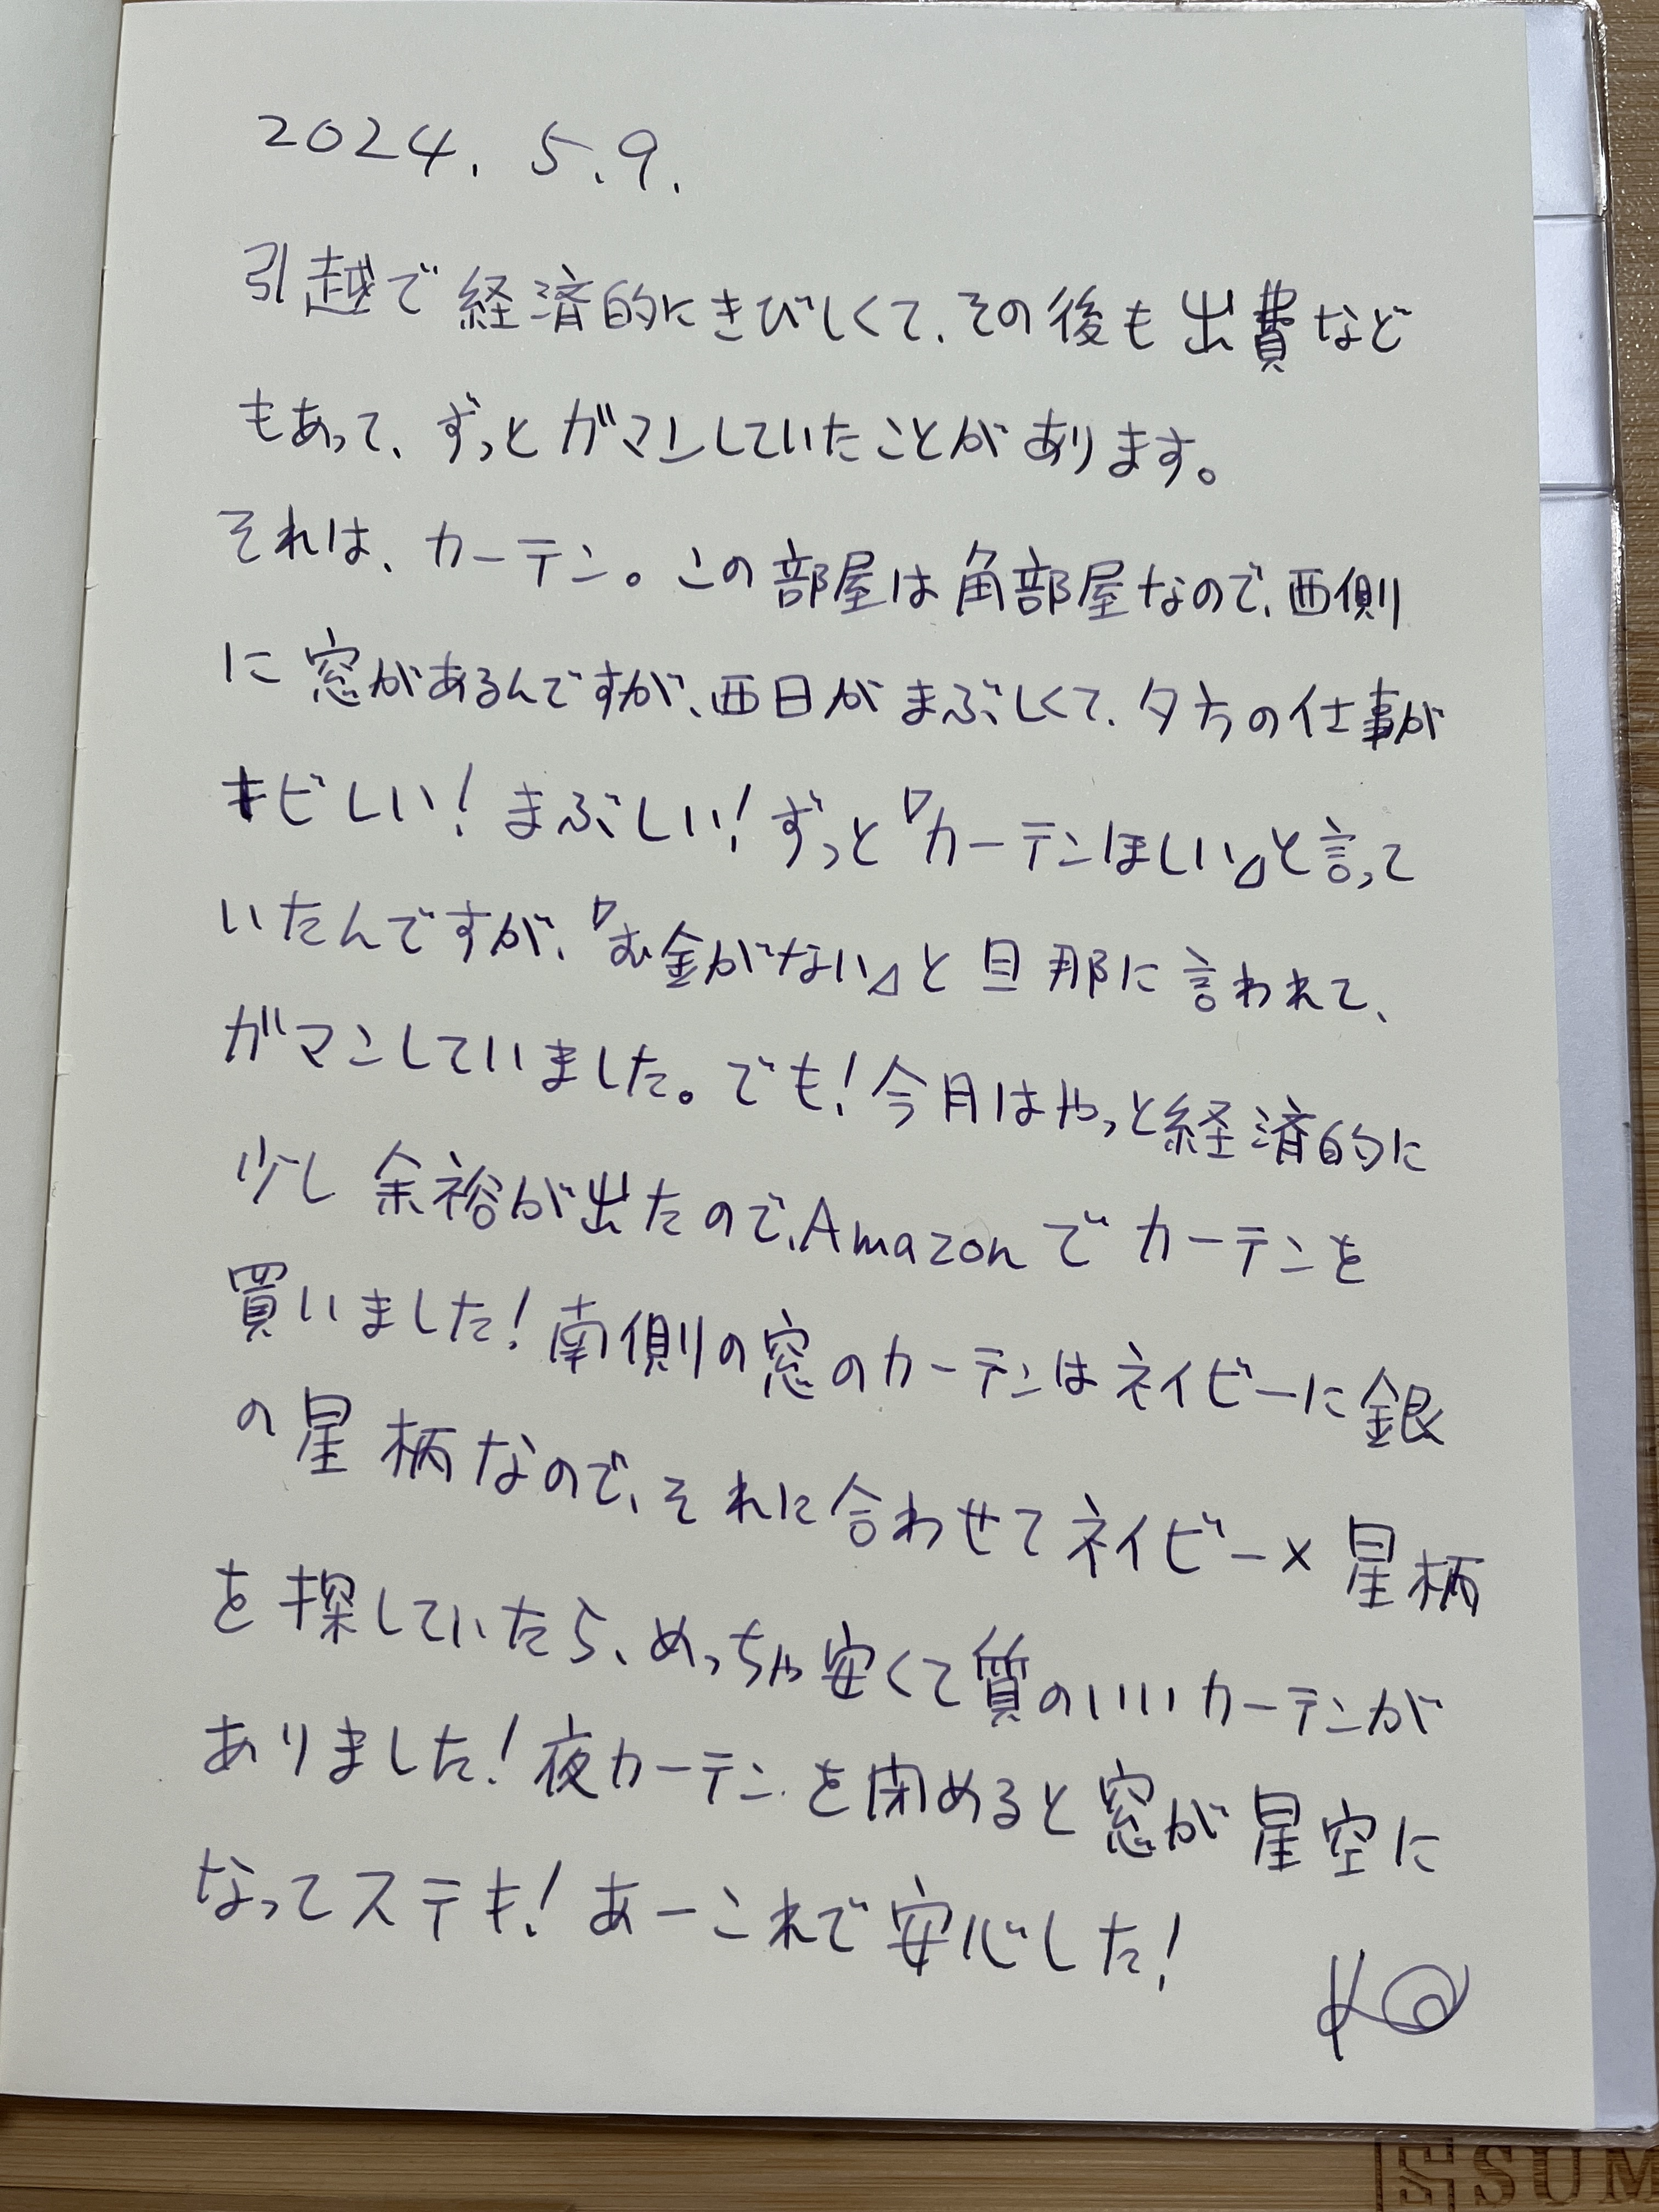 2024. 5.9.
引越で経済的にきびしくて、その後も出費など
もあって、ずっとガマンしていたことがあります。
それは、カーテン。この部屋は角部屋なので、西側
に窓があるんですが、西日がまぶしくて、夕方の仕事が
キビしい!まぶしい!ずっと『カーテンほしい』と言って
いたんですが、『お金がない』と旦那に言われて、
ガマンしていました。でも!今月はやっと経済的に
少し余裕が出たので、Amazonでカーテンを
買いました!南側の窓のカーテンはネイビーに銀
の星柄なので、それに合わせてネイビー×星柄
を探していたら、めっちゃ安くて質のいいカーテンが
ありました!夜カーテンを閉めると窓が星空に
なってステキ!あーこれで安心した!
SUM